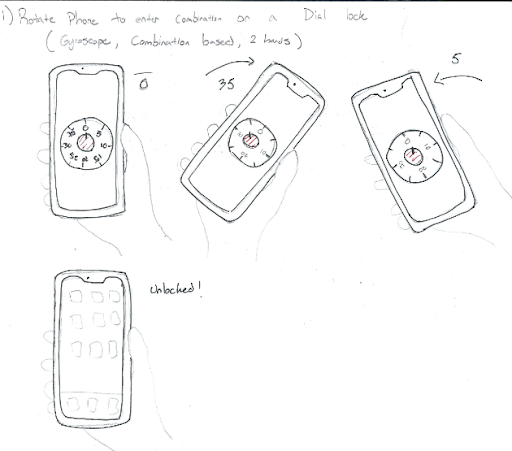 1) Rotate Phone to enter combination on a Dial lock
(Gyroscope, Combination based, 2 hands)
0
35
5
0
5
10
15
20
25
30
35
0
10
20
0
10
20
Unlocked!